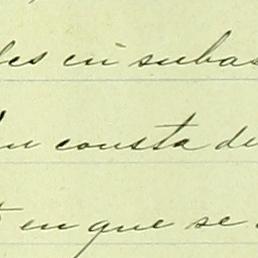 les en subas
consta de
en que se